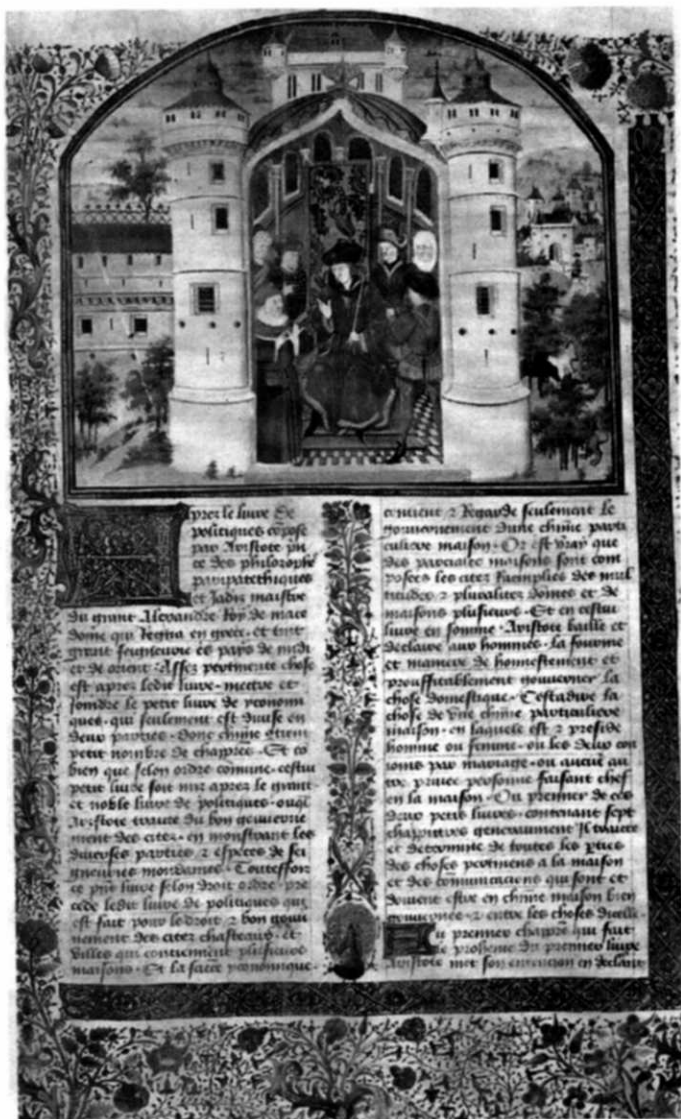 Aprez le livre de
politiques cōpose
par Aristote prī
ce des philosophes
paripatethiques
et Jadis maistre
du grant Alexandre Roy de mace
done qui Regna en grece. et tint
grant seigneurie es pays de midi
et de orient. Assez pertinente chose
est aprez ledit livre mettre et
Joindre le petit livre de yconomi
ques. qui seulement est divise en
deux parties. dont chūne contient
petit nombre de chappitres. Et co
bien que selon ordre cōmune. cestui
petit livre soit mis aprez le grant
et noble livre de politiques. ouquel
Aristote traicte du bon gouverne
ment des citez. en monstrant les
diverses parties ⁊ especes de sei
gneuries mondaines. Touteffois
ce pn̄t livre selon droit ordre pre
cede ledit livre de politiques qui
est fait pour le droit ⁊ bon gouv
nement des citez chasteaux. et
villes qui contiennent plusieurs
maisons. Et la science yconomique.
contient ⁊ Regarde seulement le
gouvernement dune chūne parti
culiere maison. Or est vray que
des parciales maisons sont com
posees les citez Raemplies des mul
titudes ⁊ pluralitez dommes et de
maisons plusieurs. Et en cestui
livre en somme. Aristote baille et
declaire aux hommes. la fourme
et maniere de honnestement et
prouffitablement gouverner la
chose domestique. Cestadire la
chose de une chūne particuliere
maison. en laquele est ⁊ preside
homme ou femme. ou les deux con
ioins par mariage. ou aucun au
tre privee personne faisant chef
en la maison. Ou premier de ces
deux petis livres. contenant sept
chappitres generaument Il traicte
et determine de toutes les pties
des choses pertinens a la maison
et des cōmunicacions qui sont et
doivent estre en chūne maison bien
gouvernee. ⁊ entre les choses dicelle.
Du premier chappitre qui fait
le proheme du premier livre
Aristote met son entencion en declairt